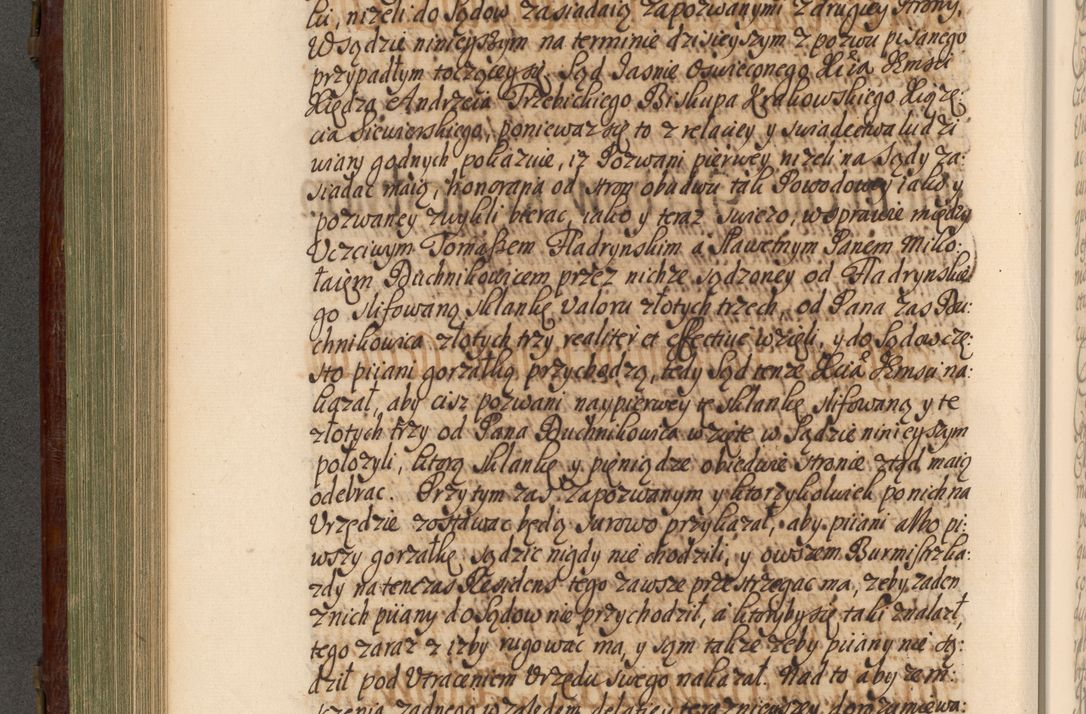 ku, niżeli do Sądow zasiadaią zapozwanymi z drugiey strony.
W Sądzie ninieyszym na terminie dzisieyszym z pozwu pisanego
przypadłym toczącey się, Sąd Jasnie Oswieconego Xcia Jmsci
Xiędza Andrzeia Trzebickiego Biskupa Krakowskiego Xiąże:
cia Siewierskiego, poniewaz się to z relaciey y swiadectwa ludzi
wiary godnych pokazuie, iz Pozwani pierwey nizeli na Sądy za:
siadac maią, honoraria od stron obudwu tak Powodowey iako y
pozwaney zwykli bierac, iako y teraz swiezo, w sprawie między
Uczciwym Tomaszem Hadrynskim a Sławetnym Panem Miko:
łaiem Buchnikowicem przez nichze sądzoney od Hadrynskie
go slifowaną sklankę valoru złotych trzech, od Pana zas Bu:
chnikowica złotych trzy realiter et effectiue wzięli, y do Sądow czę:
sto piiani gorzałką przychodzą, tedy Sąd tenze Xcia Jmsci na:
kazał, aby cisz pozwani naypierwey tę sklankę slifowaną y te
złotych trzy od Pana Buchnikowica wzięte w Sądzie ninieyszym
połozyli, ktorą sklankę y pieniądze obiedwie stronie ztąd maią
odebrac. Przytym zas zapozwanym y ktorzykolwiek po nich na
Urzędzie zostawac będą surowo przykazał, aby piiani albo pi:
wszy gorzałkę sądzic nigdy nie chodzili, y owszem Burmistrz ka:
zdy natenczas Residens tego zawsze przestrzegac ma, zeby zaden
z nich piiany do Sądow nie przychodził, a ktoryby się taki znalazł,
tego zaraz z izby rugowac ma, y sąm także zeby piiany nie cho:
dził pod utraceniem Urzędu swego nakazał. Nad to aby ze m:
szczenia zadnego względem delatiey teraznieyszey